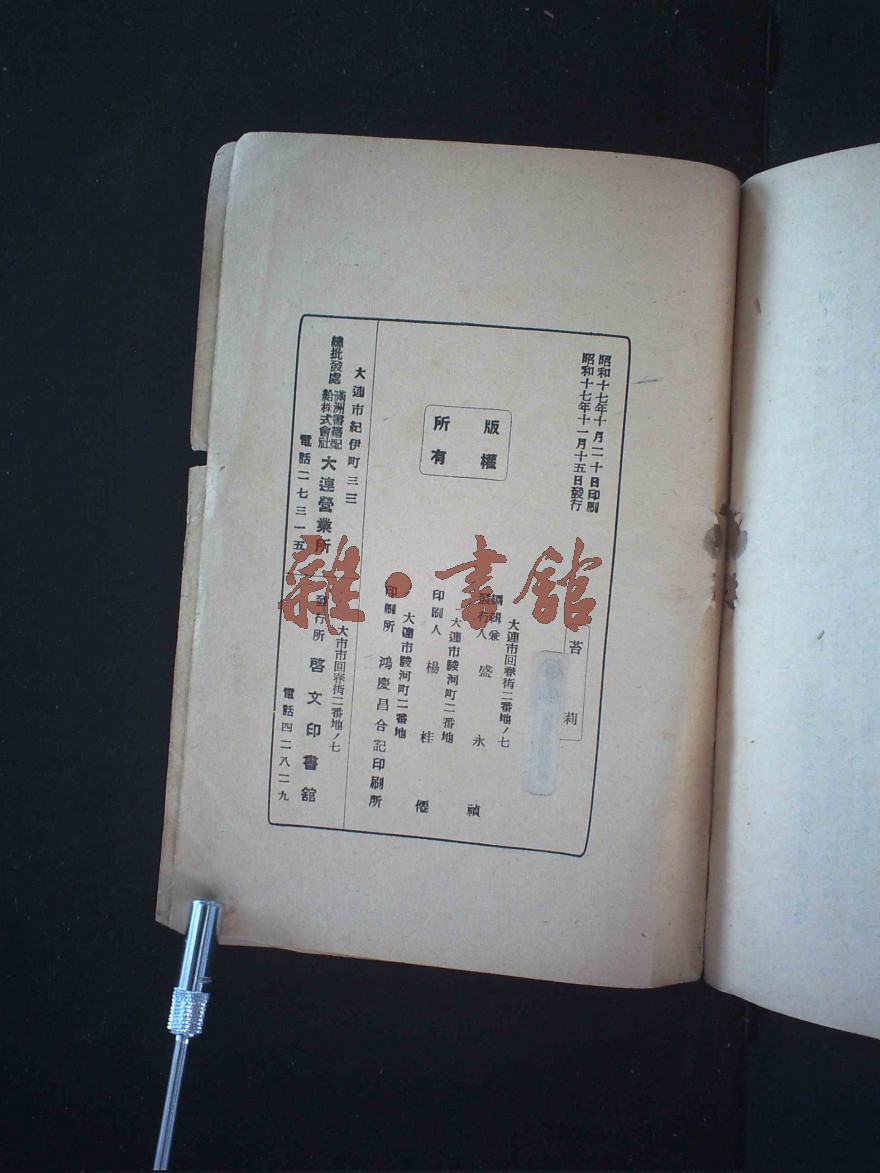 昭和十七年十月二十日印刷
昭和十七年十一月十五日發行
苔莉
版權
所有
大連市回春街二番地ノ七
編輯兼
發行人 盛永禎
大連市駿河町二番地
印刷人 楊桂僊
大連市駿河町二番地
印刷所 鴻慶昌合記印刷所
大連市紀伊町三三
總批發處 滿洲書籍配給株式會社 大連營業所
電話二七三一五
大市市回春街二番地ノ七
發行所 啓文印書館
電話四二八二九
雜·書館